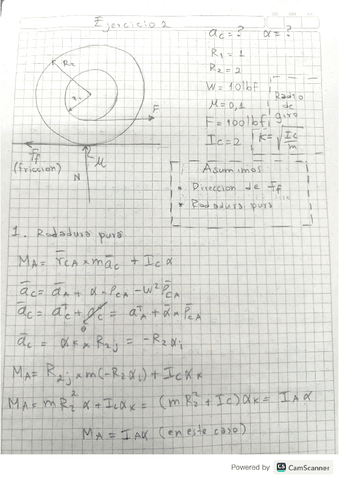 Ejercicio 2
ac = ? α = ?
R1 = 1
R2 = 2
W = 10 lbf
M = 0,1
F = 100 lbf
Ic = 2
Radio
de
giro
K = √Ic/m
R2
r1
F
Ff
(friccion)
M
N
Asumimos
• Direccion de Ff
* Rodadura pura
1. Rodadura pura
MA = r̄CA × māc + Ic α
āc = āA + α × ρCA - W² ρ̄CA
āc = aᵗc + aⁿc = aᵗA + ᾱ × ρ̄CA
0
āc = αK × R2j = -R2 αi
MA = R2j × m(-R2 αi) + Ic αK
MA = m R2² α + Ic αK = (m R2² + Ic) αK = IA α
MA = IAα (en este caso)
Powered by CS CamScanner